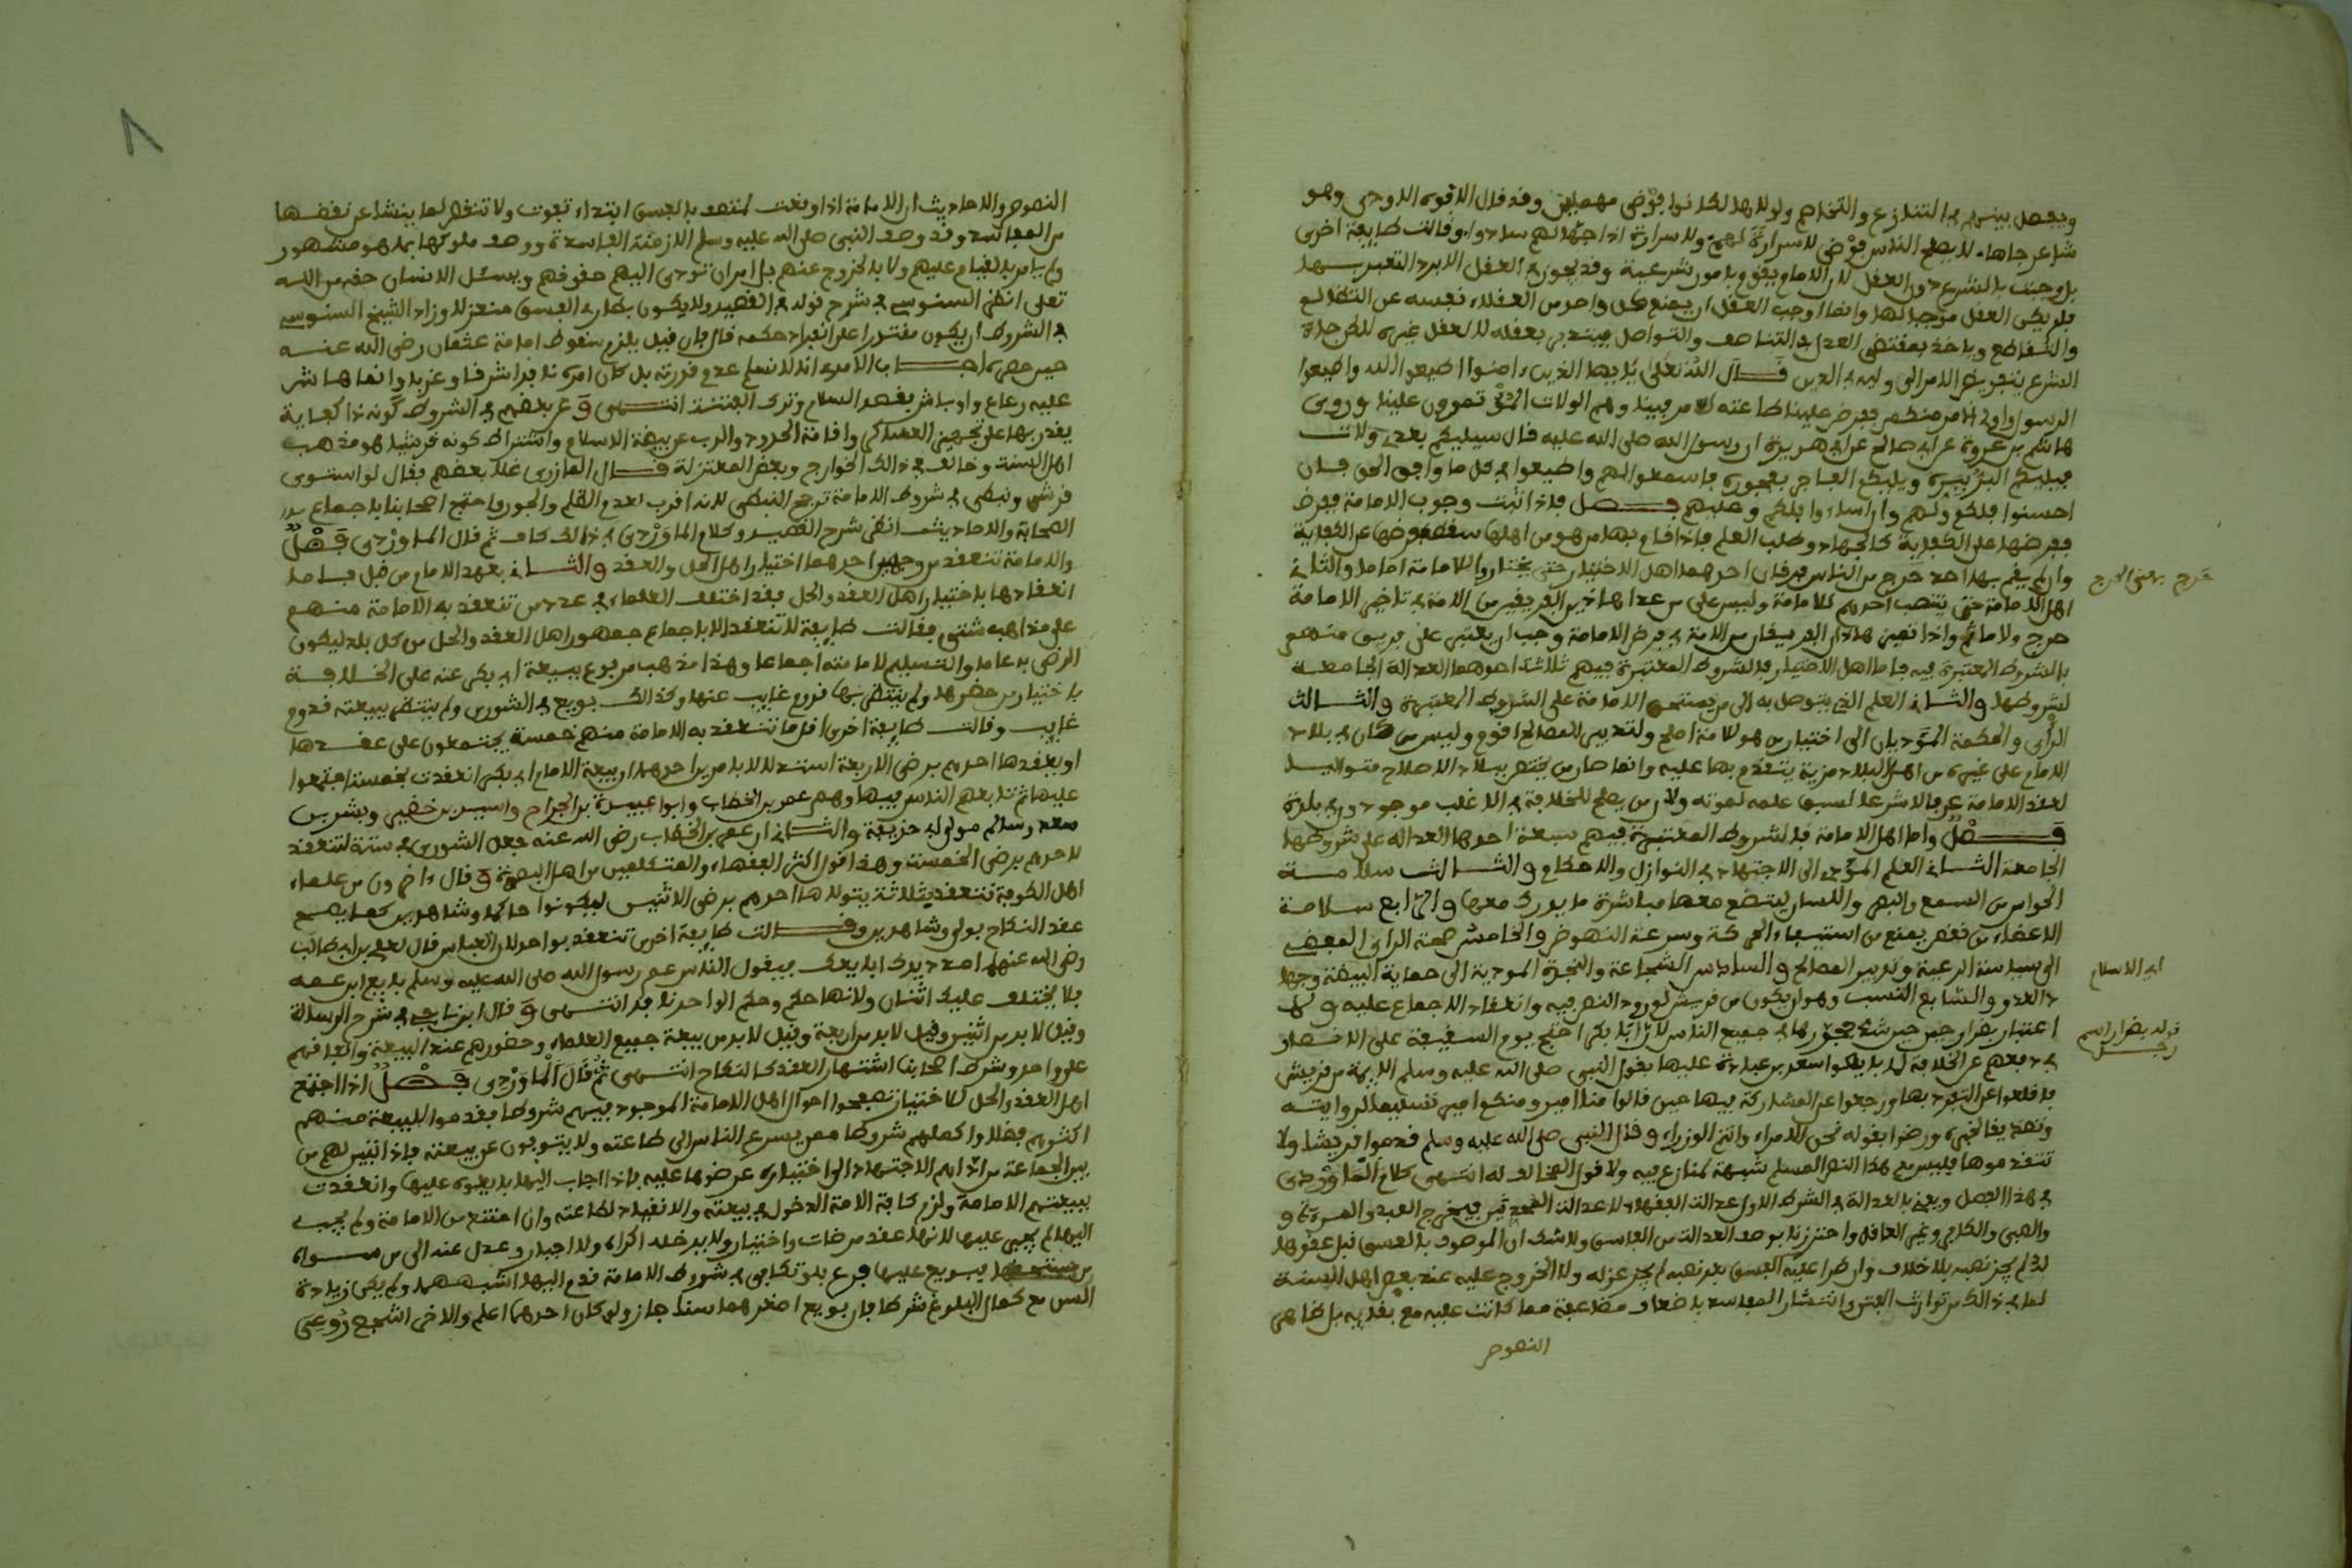 ويفصل بينهم في التنازع والتخاصم ولولاها لكانوا فوضى مهملين وقد قال الافوه الاودي وهو
شاعر جاهلي لا يصلح الناس فوضى لا سراة لهم ولا سراة اذا جهالهم سادوا، وقالت طايفة اخرى
بل وجبت بالشرع دون العقل لان الامام يقوم بامور شرعية وقد يجوز في العقل الا يرد التعبد بها
فلم يكن العقل موجبا لها وانما اوجب العقل ان يمنع كل واحد من العقلاء نفسه عن التظالم
والتقاطع وياخذ بمقتضى العدل في التناصف والتواصل فيتدبر بعقله لا بعقل غيره لاكن جاء
الشرع بتفويض الامر الى وليه في الدين قال الله تعلى يايها الذين ءامنوا اطيعوا الله واطيعوا
الرسول واولي الامر منكم ففرض علينا طاعته اولي الامر فينا وهم الولات المتامرون علينا وروى
هاشم بن عروة عن ابي صالح عن ابي هريرة ان رسول الله صلى الله عليه قال سيليكم بعدي ولات
فيليكم البر ببره ويليكم الفاجر بفجوره فاسمعوا لهم واطيعوا في كل ما وافق الحق فان
احسنوا فلكم ولهم وان اساءوا فلكم وعليهم فصل فاذا اثبت وجوب الامامة ففرض
ففرضها على الكفاية كالجهاد وطلب العلم فاذا قام بها من هو من اهلها سقط فرضها عن الكفاية
وان لم يقم بها احد خرج من الناس فريقان احدهما اهل الاختيار حتى يختاروا للامامة اماما والثاني
خرج بمعنى الحرج
اهل الامامة حتى ينتصب احدهم للامامة وليس على من عدا هاذين الفريقين من الامة في تاخير الامامة
حرج ولا ماثم واذا تعين هاذان الفريقان من الامة في فرض الامامة وجب ان يعتبر على فريق منهم
بالشروط المعتبرة فيه فاما اهل الاختيار فالشروط المعتبرة فيهم ثلاثة احدهما العدالة الجامعة
لشروطها والثاني العلم الذي يتوصل به الى من يستحق الامامة على الشروط المعتبرة والثالث
الرأي والحكمة المؤديان الى اختيار من هو للامامة اصلح ولتدبير المصالح اقوم وليس من كان في بلاد
الامام على غيره من اهل البلاد مزية يتقدم بها عليه وانما صار من يختص ببلاد الاصلاح متوليا
لعقد الامامة عرفا لا شرعا لسبق علمه لموته ولان من يصلح للخلافة في الاغلب موجودون في بلده
فصل واما اهل الامامة فالشروط المعتبرة فيهم سبعة احدها العدالة على شروطها
الجامعة الثاني العلم المؤدي الى الاجتهاد في النوازل والاحكام والثالث سلامة
الحواس من السمع والبصر واللسان ليتضح معها مباشرة ما يدرك معها والرابع سلامة
الاعضاء من نقص يمنع من استيفاء الحركة وسرعة النهوض والخامس صحة الراي المفضي
الى سياسة الرعية وتدبير المصالح والسادس الشجاعة والنجدة المودية الى حماية البيضة وجهاد
اي الاسلام
العدو والسابع النسب وهو ان يكون من قريش لورود النص فيه وانعقاد الاجماع عليه ولا
اعتبار بضرار حين شذ فجوزها في جميع الناس لان ابا بكر احتج يوم السقيفة على الانصار
قوله بضرار اسم
رجل
في دفعهم عن الخلافة لما بايعوا سعد بن عبادة عليها بقول النبي صلى الله عليه وسلم الايمة من قريش
فاقلعوا عن التفرد بها ورجعوا عن المشاركة فيها حين قالوا منا امير ومنكم امير تسليما لروايته
وتصديقا لخبره ورضوا بقوله نحن الامراء وانتم الوزراء وقال النبي صلى الله عليه وسلم قدموا قريشا ولا
تتقدموها فليس مع هذا النص المسلم شبهة لمنازع فيه ولا قول لمخالف له انتهى كلام الماوردي
في هذا الفصل ويعني بالعدالة في الشرط الاول عدالة الفقهاء لا عدالة المحدثين فيخرج العبد والمرءة و
والصبي والكافر وغير العاقل واحترز بوصف العدالة من الفاسق ولا شك ان الموصوف بالفسق قبل عقدها
له لم يجز نصبه بلا خلاف وان طرا عليه الفسق بعد نصبه لم يجز عزله ولا الخروج عليه عند بعض اهل السنة
لما في ذالك من توارث الفتن وانتشار المفاسد باضعاف مضاعفة مما كانت عليه مع بقايه بل ظاهر
النصوص
٨
النصوص والاحاديث ان الامامة اذا وقعت لمتصف بالفسق ابتداء تفوت ولا تنقض لما ينشا عن نقضها
من المفاسد وقد وصف النبي صلى الله عليه وسلم الازمنة الفاسدة ووصف ملوكها بما هو مشهور
ولم يامر بالقيام عليهم ولا بالخروج عنهم بل امر ان تودى اليهم حقوقهم ويسئل الانسان حقه من الله
تعلى انظر السنوسي في شرح قوله في القصيد ولا يكون بطارئ الفسق منعزلا وزاد الشيخ السنوسي
في الشروط ان يكون مقتدرا على انفاذ حكمه قال فان قيل يلزم سقوط امامة عثمان رضي الله عنه
حين حصر اجاب الامدي انا لا نسلم عدم قدرته بل كان امره نافذا شرقا وغربا وانما هاش
عليه رعاع واوباش فقصد السلام وترك الفتنة انتهى وعد بعضهم في الشروط كونه ذا كفاية
يقدر بها على تجهيز العساكر واقامة الحدود والذب عن بيضة الاسلام واشتراط كونه قرشيا هو مذهب
اهل السنة وخالف في ذالك الخوارج وبعض المعتزلة قال المازري غلا بعضهم فقال لو استوى
قرشي ونبطي في شروط الامامة ترجح النبطي لانه اقرب لعدم الظلم والجور واحتج اصحابنا باجماع
الصحابة والاحاديث انظر شرح القصيد وكلام الماوردي في ذالك كاف ثم قال الماوردي فصل
والامامة تنعقد من وجهين احدهما اختيار اهل الحل والعقد والثاني بعهد الامام من قبل فاما
انعقادها باختيار اهل العقد والحل فقد اختلف العلماء في عدد من تنعقد به الامامة منهم
على مذاهب شتى فقالت طايفة لا تنعقد الا باجماع جمهور اهل العقد والحل من كل بلد ليكون
الرضى به عاما والتسليم لامامته اجماعا وهذا مذهب مدفوع ببيعة ابي بكر عنه على الخلافة
باختيار من حضرها ولم ينتظر بها قدوم غايب عنها وكذالك بويع في الشورى ولم ينتظر ببيعته قدوم
غايب وقالت طايفة اخرى اقل ما تنعقد به الامامة منهم خمسة يجتمعون على عقدها
او يعقدها احدهم برضى الاربعة استدلالا بامرين احدهما ان بيعة الامام ابي بكر انعقدت بخمسة اجتمعوا
عليها ثم تابعهم الناس فيها وهم عمر بن الخطاب وابوا عبيدة بن الجراح واسيد بن خضير وبشر بن
سعد وسالم مولى ابي حذيفة والثاني ان عمر بن الخطاب رضي الله عنه جعل الشورى في ستة لتنعقد
لاحدهم برضى الخمسة وهذا قول اكثر الفقهاء والمتكلمين من اهل البصرة وقال ءاخرون من علماء
اهل الكوفة تنعقد بثلاثة يتولاها احدهم برضى الاثنين ليكونوا حاكما وشاهدين كما يصح
عقد النكاح بولي وشاهدين وقالت طايفة اخرى تنعقد بواحد لان العباس قال لعلي بن ابي طالب
رضي الله عنهما امدد يدك ابايعك فيقول الناس عم رسول الله صلى الله عليه وسلم بايع ابن عمه
فلا يختلف عليك اثنان ولانها حكم وحكم الواحد نافد انتهى وقال ابن ناجي في شرح الرسالة
وقيل لا بد من اثنين وقيل لا بد من اربعة وقيل لا بد من بيعة جميع العلماء وحضورهم عند البيعة واتفاقهم
على واحد وشرط اصحابنا اشتهار العقد كالنكاح انتهى ثم قال الماوردي فصل اذا اجتمع
اهل العقد والحل للاختيار تصفحوا احوال اهل الامامة الموجود فيهم شروطها فقدموا للبيعة منهم
اكثرهم فضلا واكملهم شروطا ممن يسرع الناس الى طاعته ولا يتوقفون عن بيعته فاذا تعين لهم من
بين الجماعة من اداهم الاجتهاد الى اختياره عرضوها عليه فاذا اجاب اليها بايعوه عليها وانعقدت
ببيعتهم الامامة ولزم كافة الامة الدخول في بيعته والانقياد لطاعته وان امتنع من الامامة ولم يجب
اليها لم يجبر عليها لانها عقد مرضات واختيار ولا يدخله اكراه ولا اجبار وعدل عنه الى من سواه
من مستحقيها فبويع عليها فرع فلو تكافى في شروط الامامة قدم اليها اسنهما ولم يكن زيادة
السن مع كمال البلوغ شرطا فان بويع اصغرهما سنا جاز ولو كان احدهما اعلم والاخر اشجع روعي